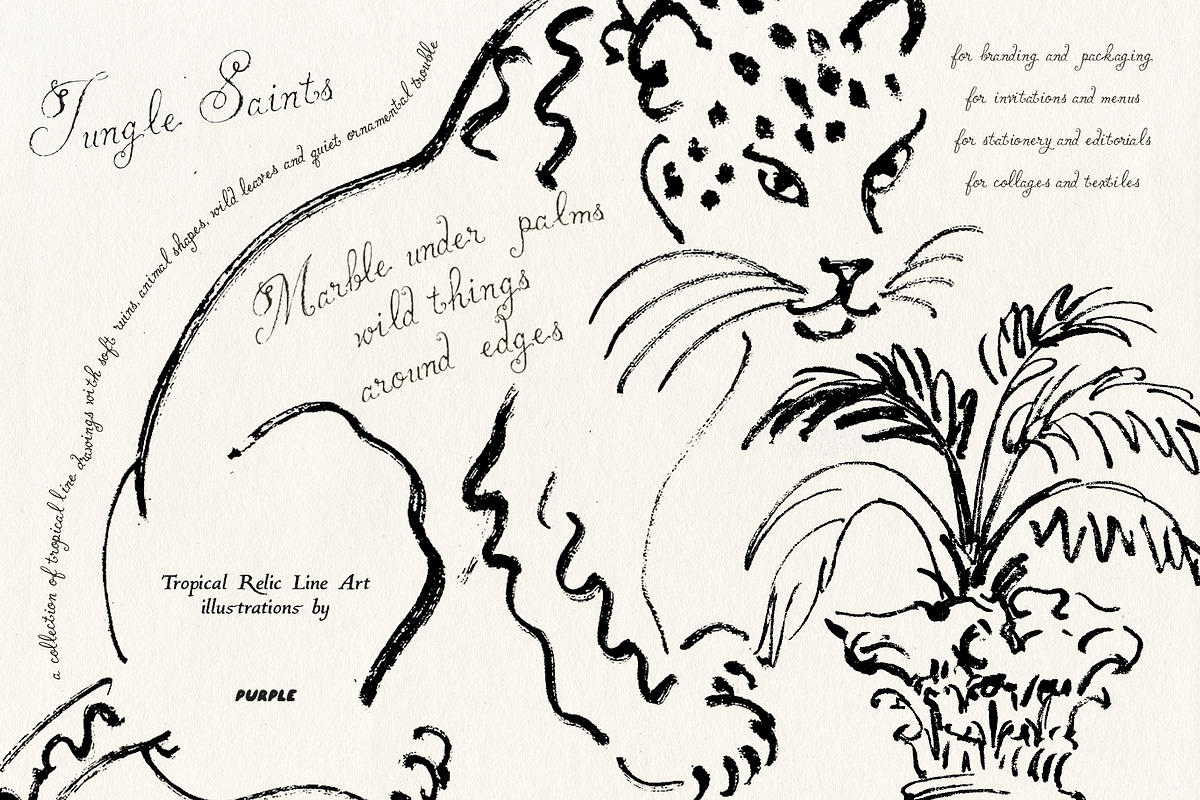 Jungle Saints
a collection of tropical line drawings with soft ruins, animal shapes, wild leaves and quiet ornamental trouble
for branding and packaging
for invitations and menus
for stationery and editorials
for collages and textiles
Marble under palms
wild things
around edges
Tropical Relic Line Art
illustrations by
PURPLE